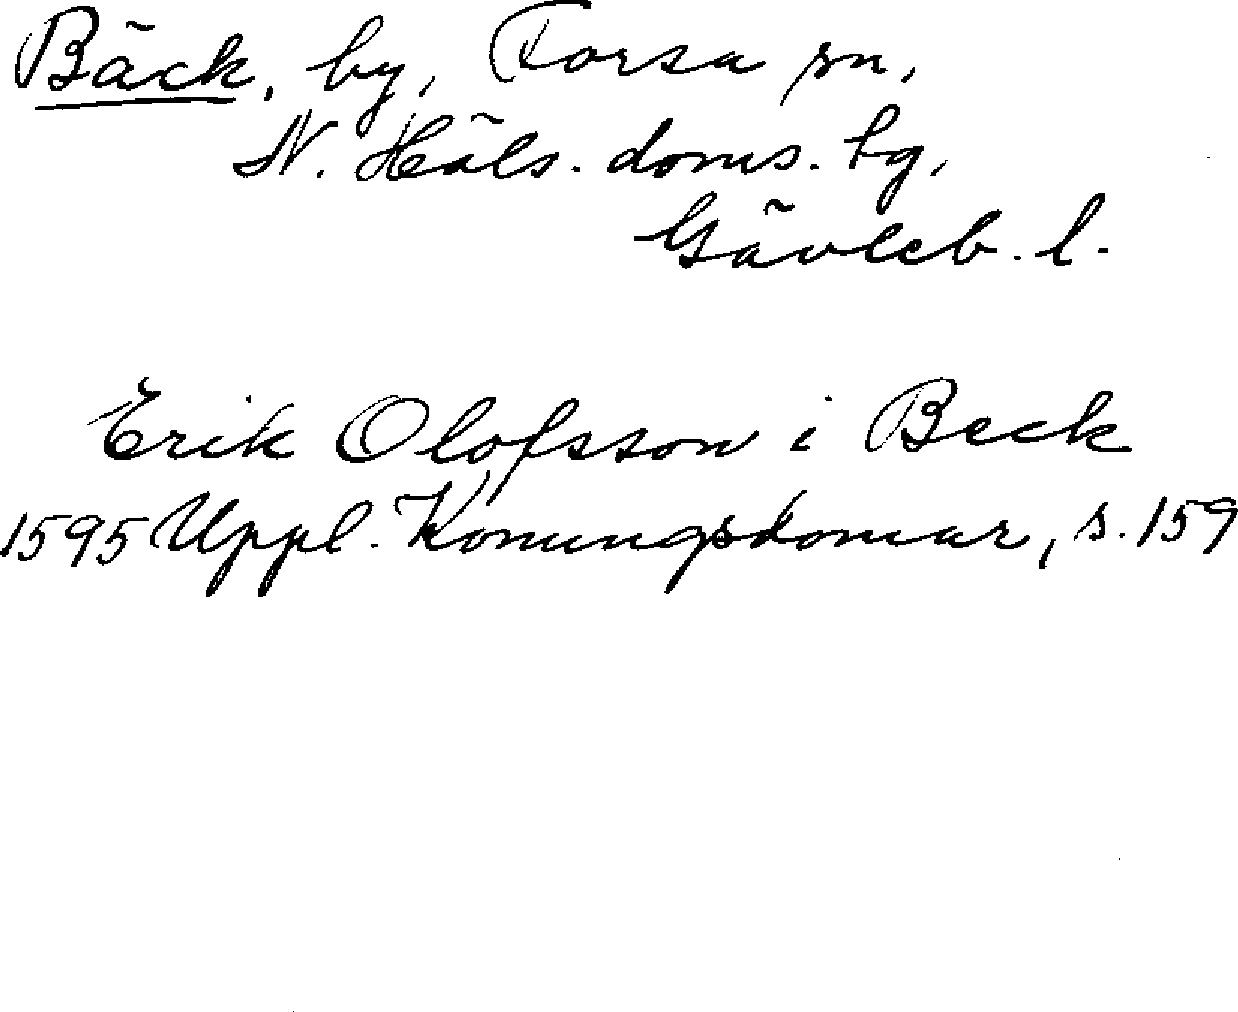 Bäck, by, Forsa sn,
N. Häls. doms. hg,
Gävleb. l.
Erik Olofsson i Beck
1595 Uppl. Konungsdomar, s. 159